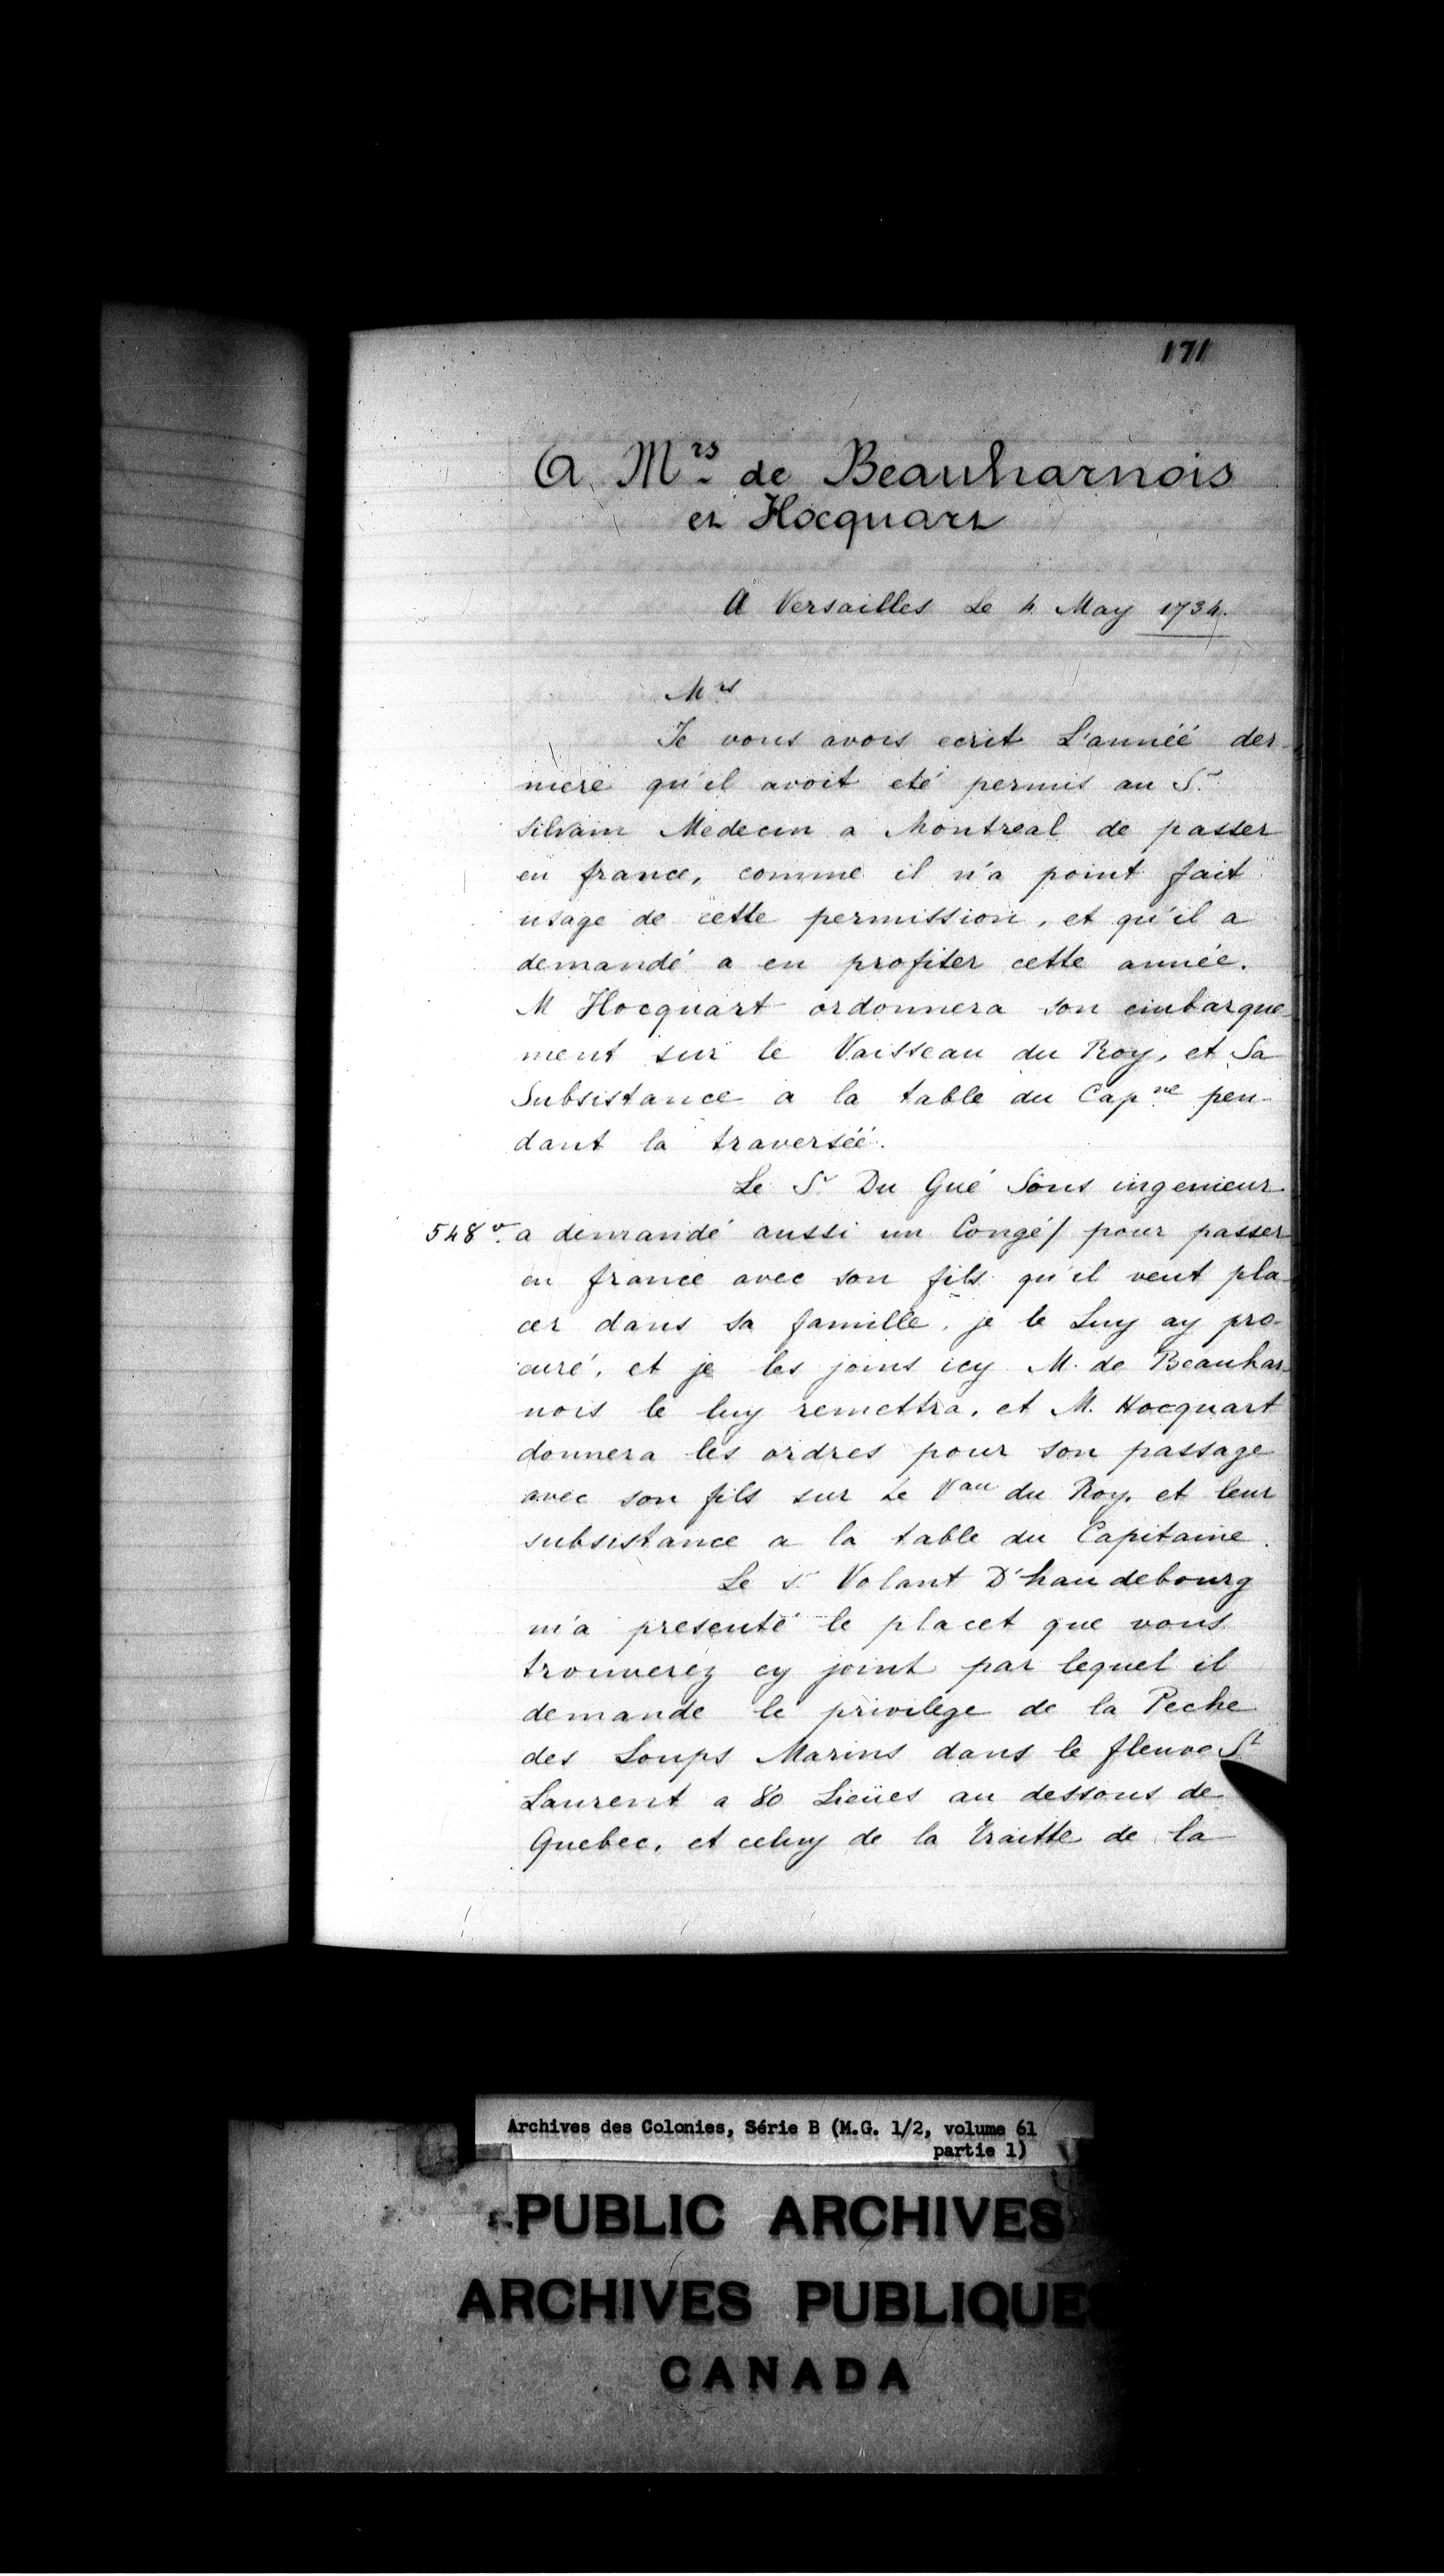 171
A Mrs de Beauharnois
et Hocquart
A Versailles Le 4 May 1734.
Mrs
Je vous avois ecrit L'année der-
niere qu'il avoit eté permis au Sr
Silvain Medecin a Montreal de passer
en france, comme il n'a point fait
usage de cette permission, et qu'il a
demandé a en profiter cette année.
M Hocquart ordonnera son embarque-
ment sur le Vaisseau du Roy, et Sa
Subsistance a la table du Capne pen-
dant la traversée.
Le Sr Du Gué Sous ingenieur
548 vo. a demandé aussi un Congé/ pour passer
en france avec son fils qu'il veut pla-
cer dans sa famille, je le Luy ay pro-
curé, et je les joins icy M. de Beauhar-
nois le luy remettra, et M. Hocquart
donnera les ordres pour son passage
avec son fils sur Le Vau du Roy, et leur
subsistance a la table du Capitaine.
Le Sr Volant D'haudebourg
m'a presenté le placet que vous
trouverez cy joint par lequel il
demande le privilege de la Peche
des Loups Marins dans le fleuve St
Laurent a 80 Lieües au dessous de
Quebec, et celuy de la traitte de la
Archives des Colonies, Série B (M.G. 1/2, volume 61
partie 1)
PUBLIC ARCHIVES
ARCHIVES PUBLIQUES
CANADA